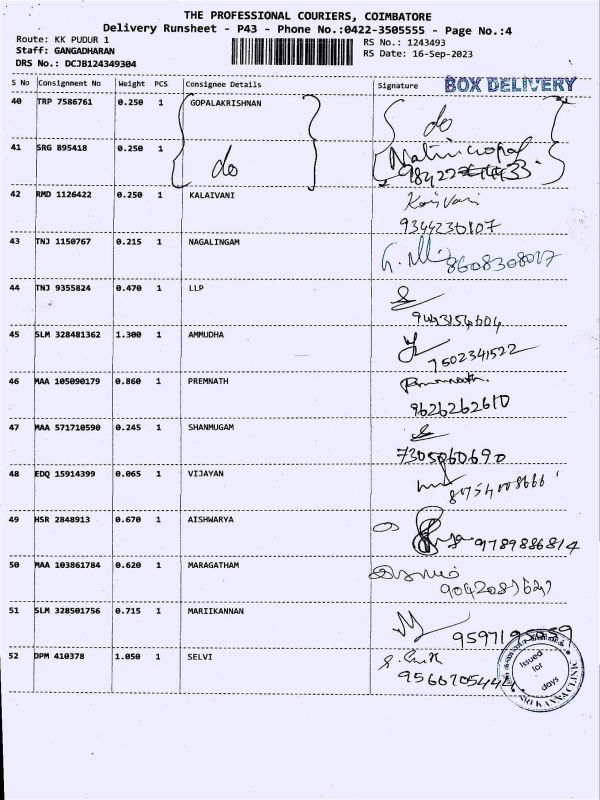 THE PROFESSIONAL COURIERS, COIMBATORE
Delivery Runsheet - P43 - Phone No.:0422-3505555 - Page No.:4
Route: KK PUDUR 1
Staff: GANGADHARAN
DRS No.: DCJB124349304
RS No.: 1243493
RS Date: 16-Sep-2023
BOX DELIVERY
S No Consignment No Weight PCS Consignee Details Signature
40 TRP 7586761 0.250 1 GOPALAKRISHNAN do
41 SRG 895418 0.250 1 do
42 RMD 1126422 0.250 1 KALAIVANI
9344230107
43 TNJ 1150767 0.215 1 NAGALINGAM 8608308017
44 TNJ 9355824 0.470 1 LLP
9443154604
45 SLM 328481362 1.300 1 AMMUDHA
7502341522
46 MAA 105090179 0.860 1 PREMNATH
9626262610
47 MAA 571710590 0.245 1 SHANMUGAM
7305060690
48 EDQ 15914399 0.065 1 VIJAYAN
49 HSR 2848913 0.670 1 AISHWARYA
9789886814
50 MAA 103861784 0.620 1 MARAGATHAM
51 SLM 328501756 0.715 1 MARIIKANNAN
52 DPM 410378 1.050 1 SELVI
Issued
for
days
SRI KANNA CLINIC